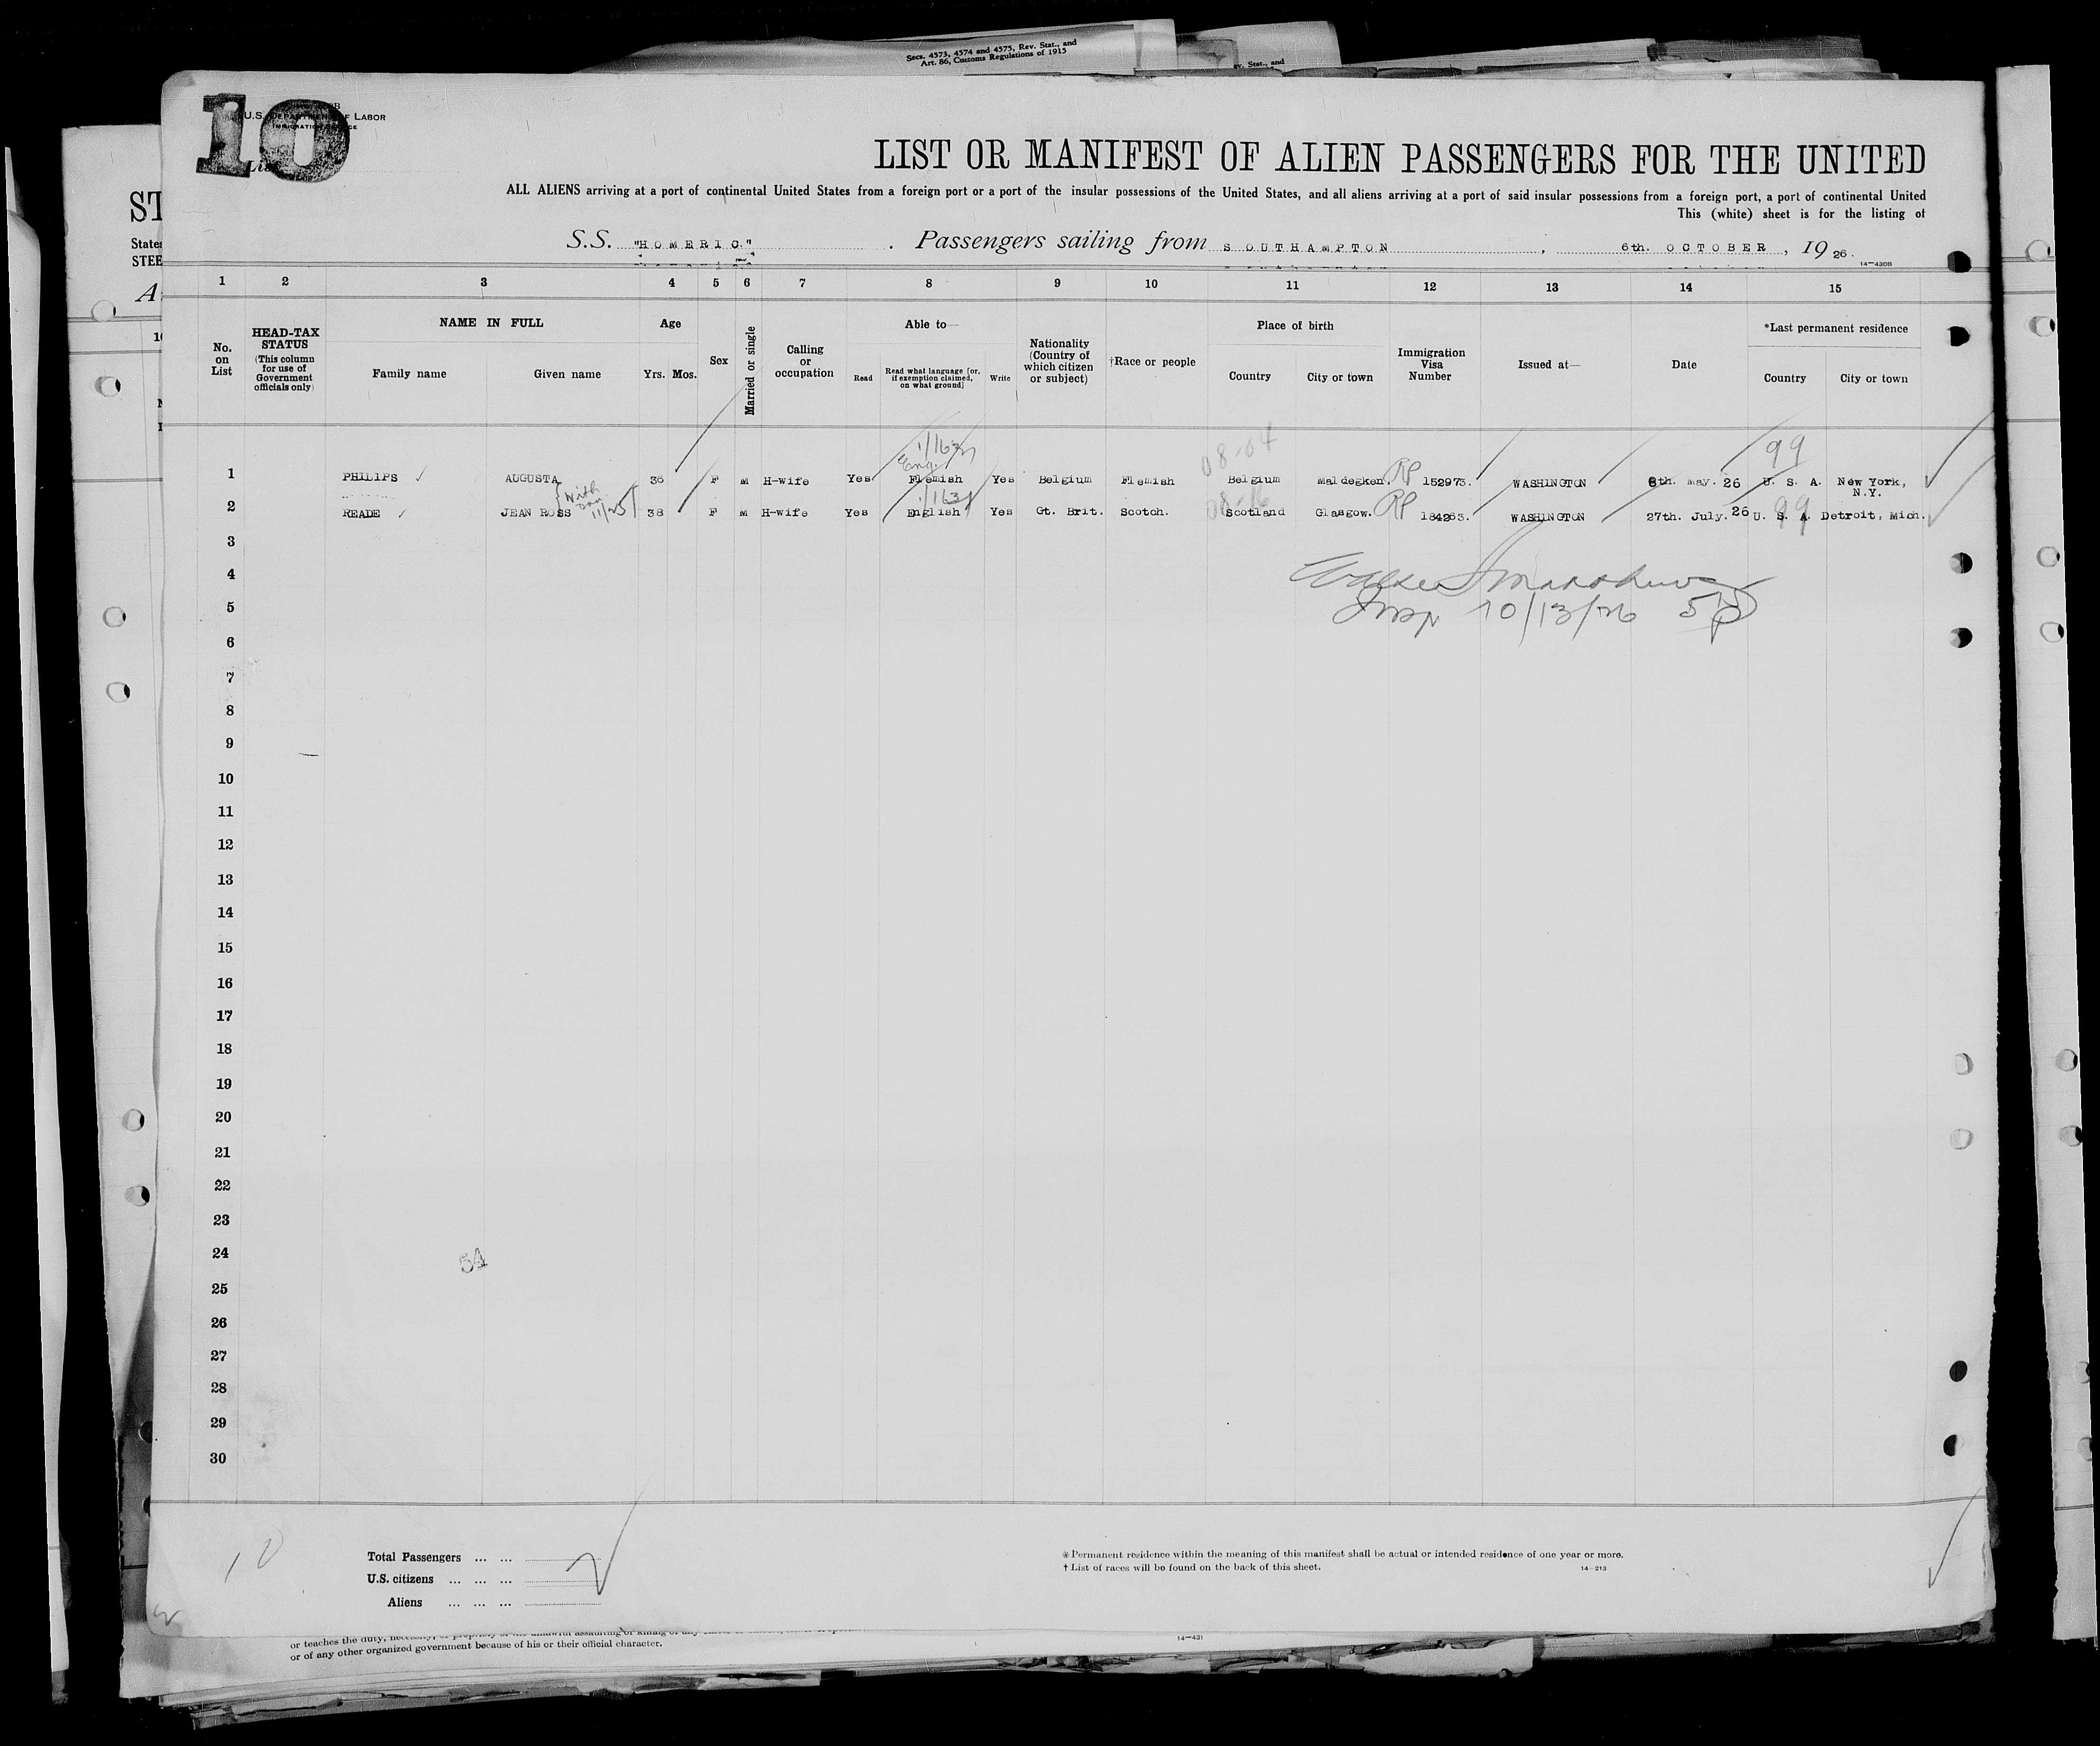 Secs. 4573, 4574 and 4575, Rev. Stat., and
Art. 86, Customs Regulations of 1915
ev. Stat., and
10
U.S. Department of Labor
LIST OR MANIFEST OF ALIEN PASSENGERS FOR THE UNITED
ALL ALIENS arriving at a port of continental United States from a foreign port or a port of the insular possessions of the United States, and all aliens arriving at a port of said insular possessions from a foreign port, a port of continental United
This (white) sheet is for the listing of
S.S. "HOMERIC" . Passengers sailing from SOUTHAMPTON , 6th. OCTOBER , 19 26.
14—430B
1 2 3 4 5 6 7 8 9 10 11 12 13 14 15
No. on List
HEAD-TAX STATUS (This column for use of Government officials only)
NAME IN FULL
Family name Given name
Age
Yrs. Mos.
Sex
Married or single
Calling or occupation
Able to—
Read Read what language [or, if exemption claimed, on what ground] Write
Nationality (Country of which citizen or subject)
†Race or people
Place of birth
Country City or town
Immigration Visa Number
Issued at—
Date
*Last permanent residence
Country City or town
1/163
Eng.
08-04
99
1 PHILIPS ✓ AUGUSTA 36 F M H-wife Yes Flemish Yes Belgium Flemish Belgium Maldegken. RP 152973. WASHINGTON 8th. May. 26 U. S. A. New York, N.Y.
With
11/25
1/163
08-16
99
2 READE ✓ JEAN ROSS 38 F M H-wife Yes English Yes Gt. Brit. Scotch. Scotland Glasgow. RP 184263. WASHINGTON 27th. July. 26 U. S. A. Detroit, Mich.
3
4
5
Insp 10/13/26
6
7
8
9
10
11
12
13
14
15
16
17
18
19
20
21
22
23
24
54
25
26
27
28
29
30
10
Total Passengers ... ...
U.S. citizens ... ... ...
Aliens ... ... ...
* Permanent residence within the meaning of this manifest shall be actual or intended residence of one year or more.
† List of races will be found on the back of this sheet.
14—213
or teaches the duty, necessity, or propriety of the unlawful assaulting or killing of any
or of any other organized government because of his or their official character.
14—431
ST
States
STEE